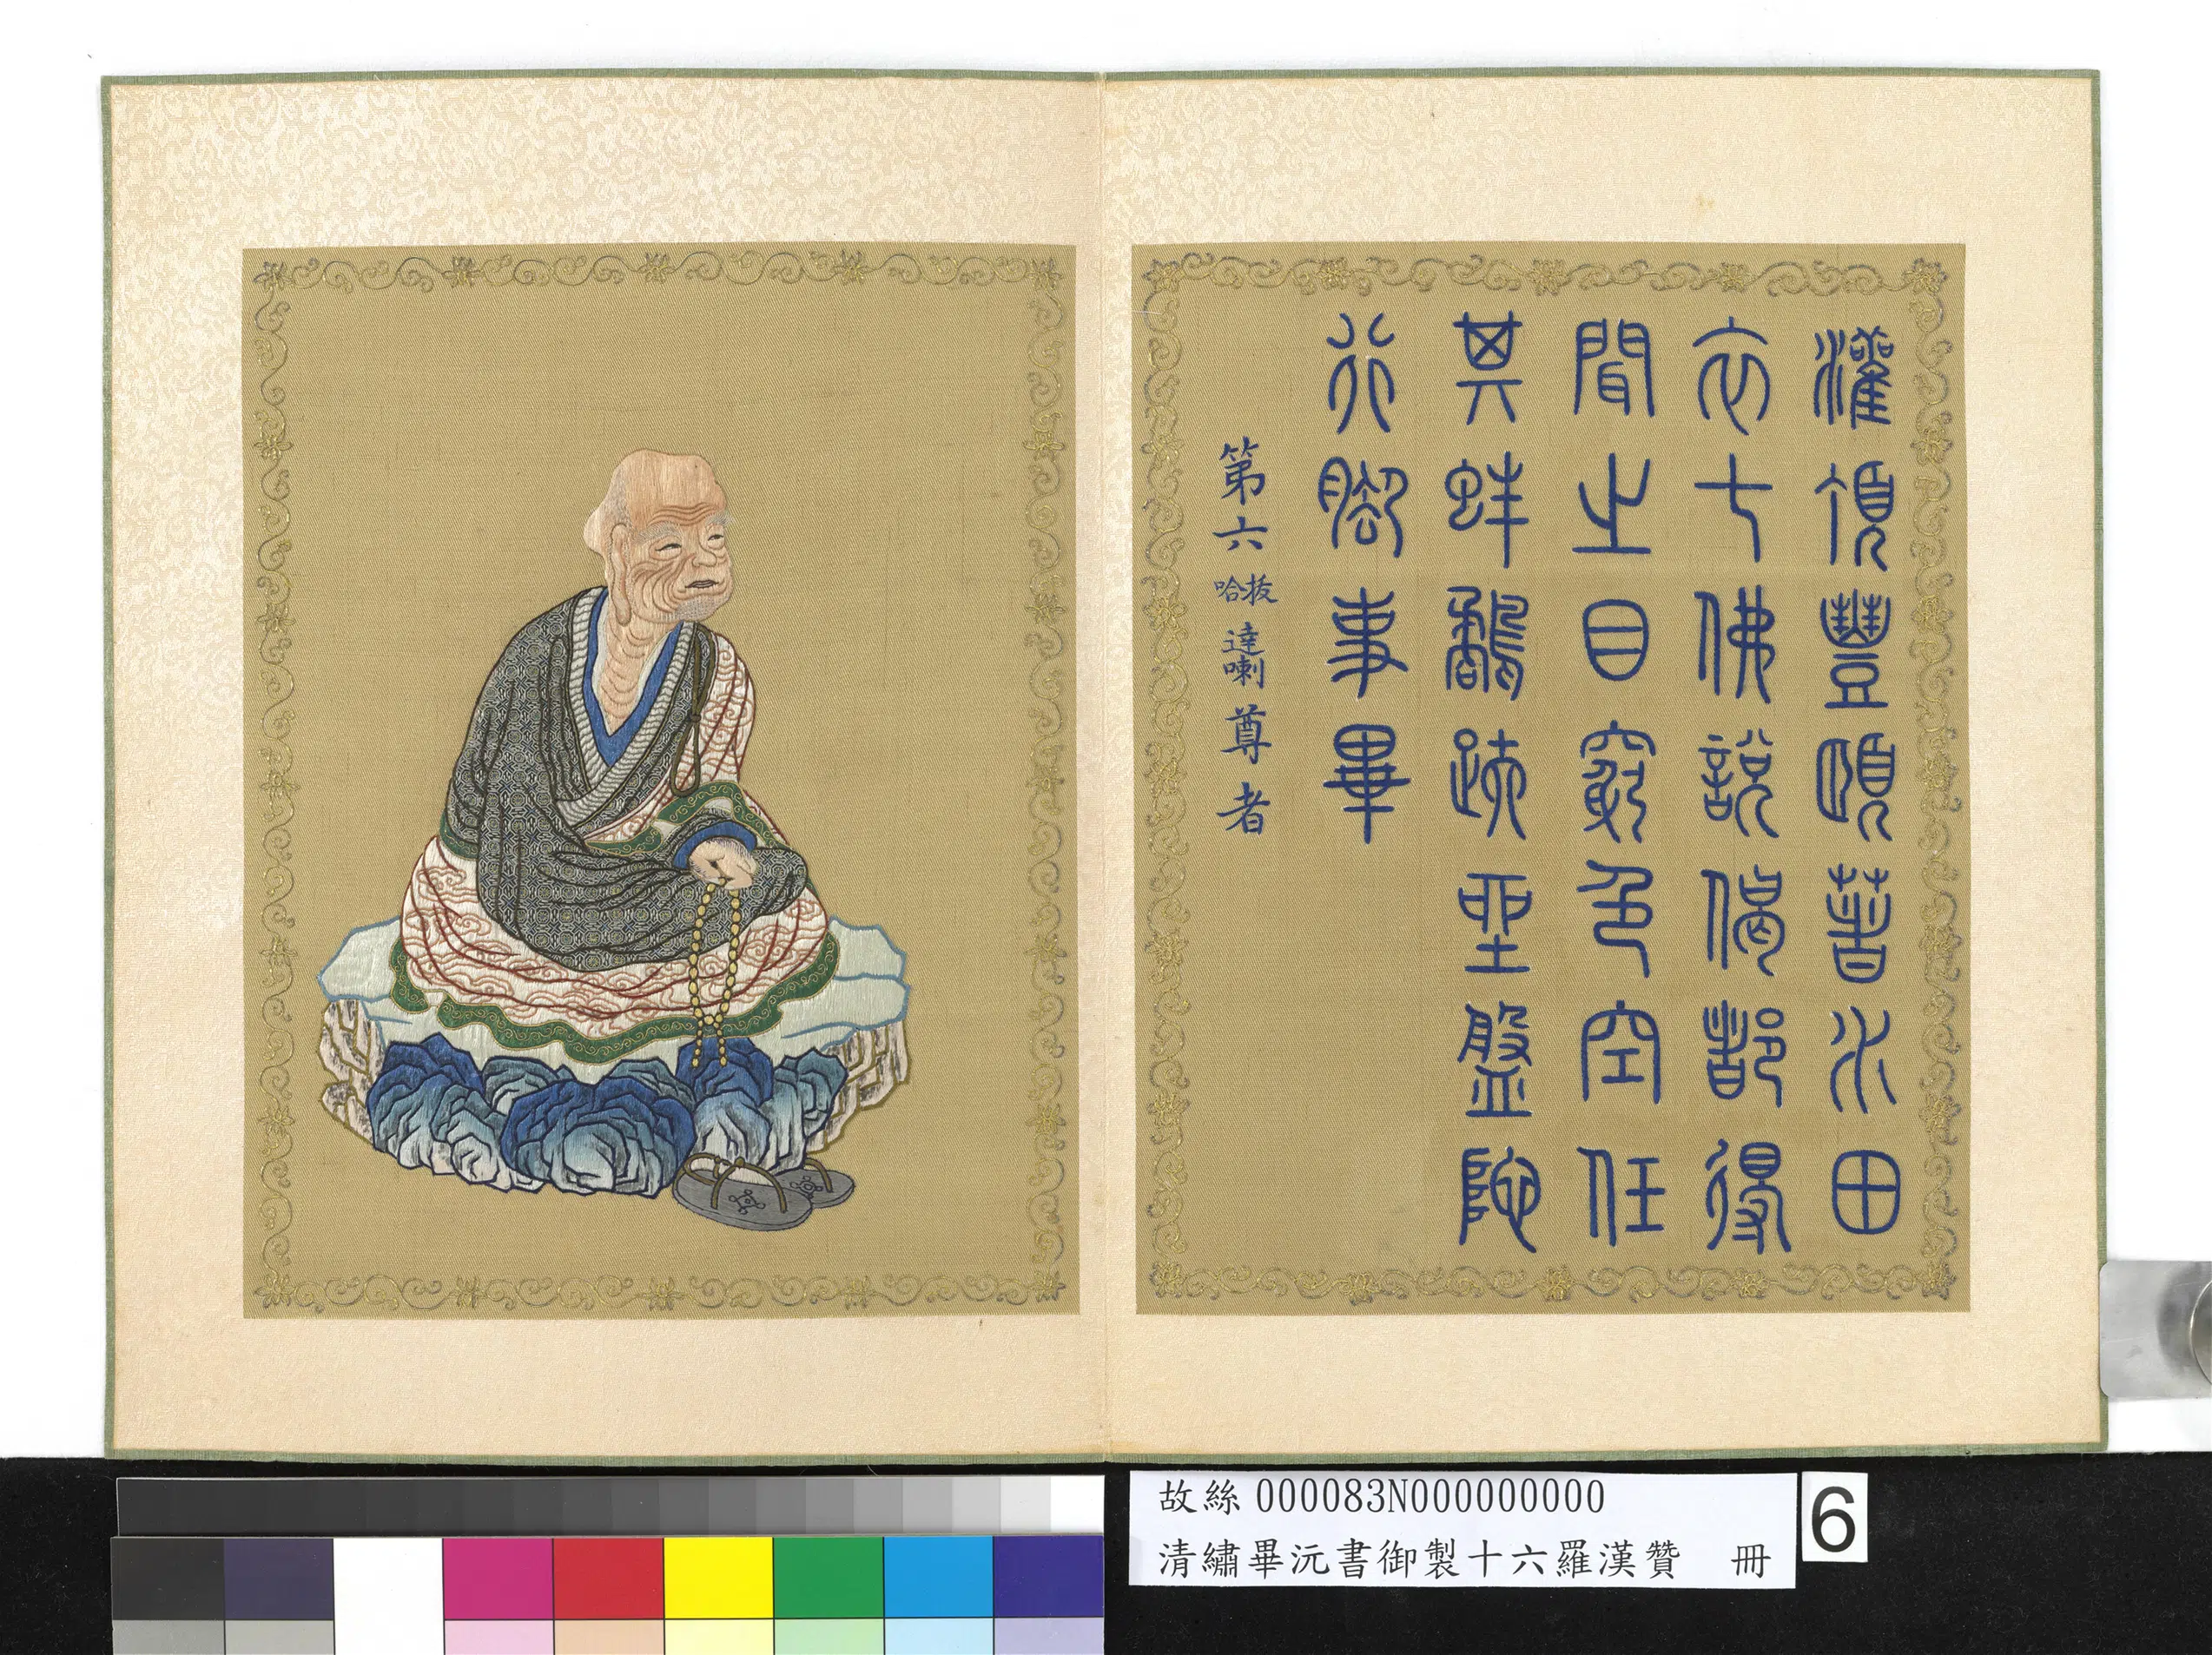 灌頂豐頤著水田
衣七佛說偈都得
聞之目窮色空任
其蚌鷸趺坐盤陀
行腳事畢
第六拔哈達喇尊者
故絲000083N000000000
清繡畢沅書御製十六羅漢贊 冊
6